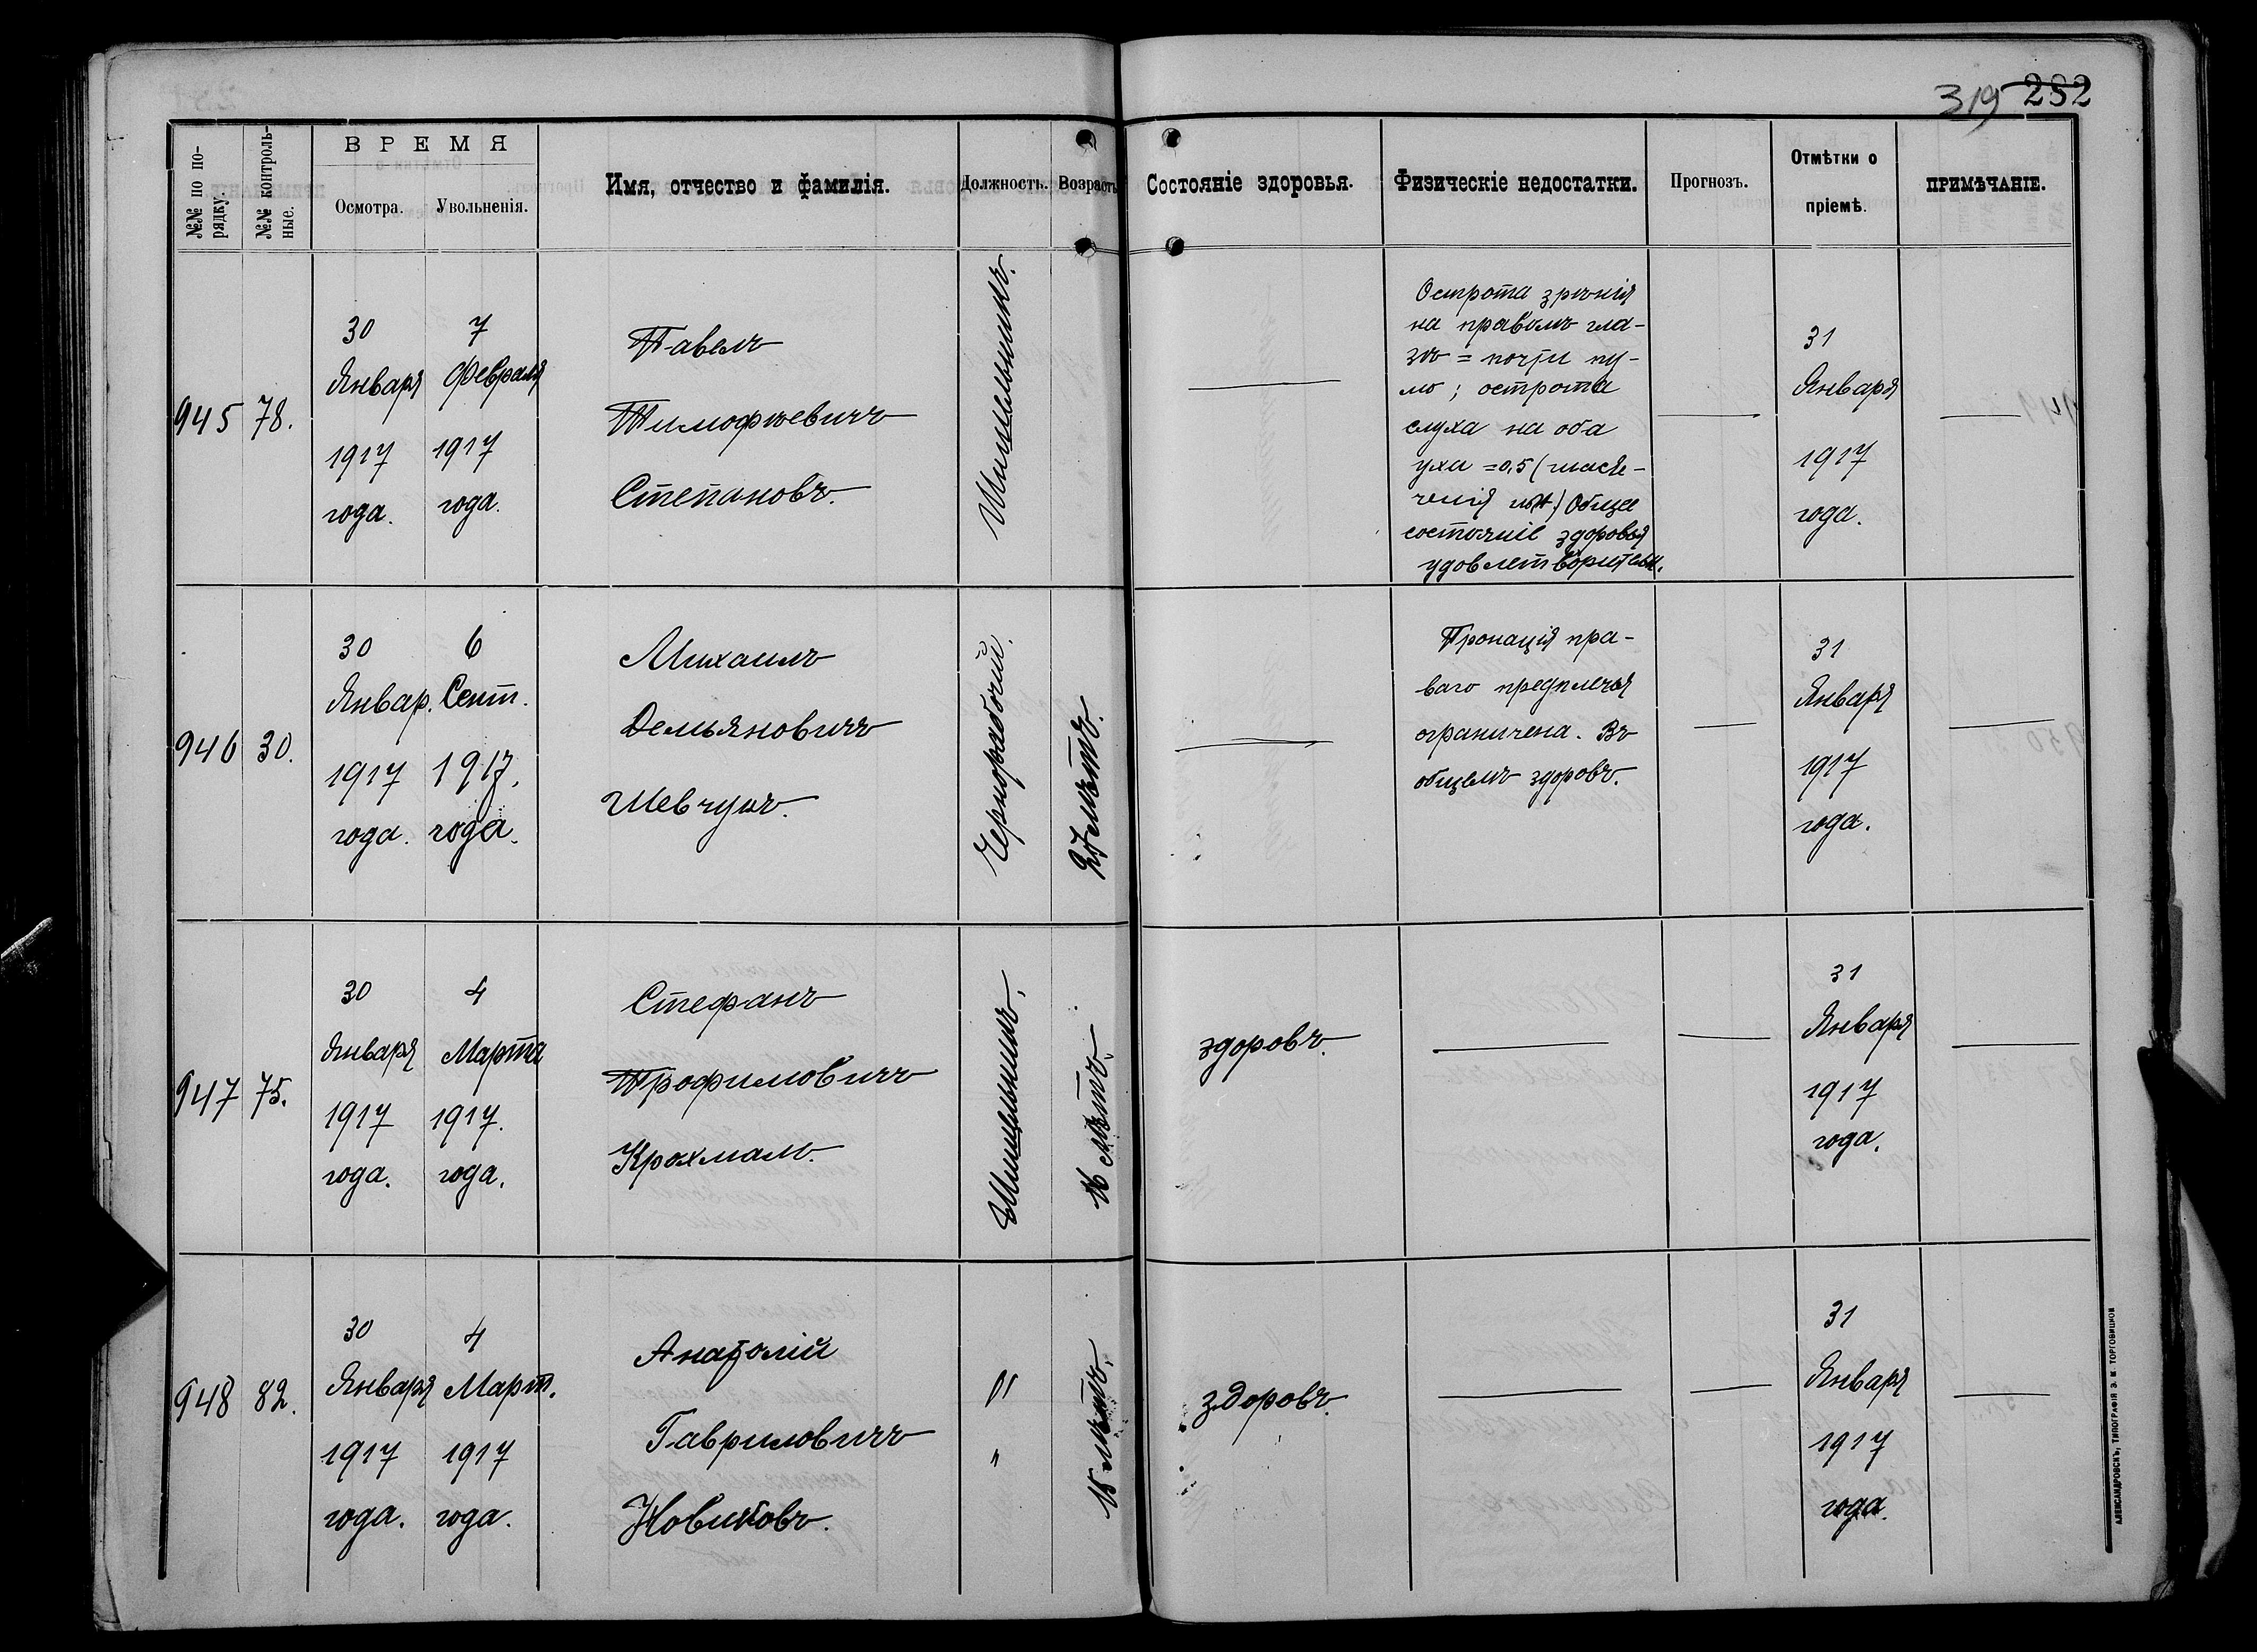 319 282
№№ по по-
рядку.
№№ контроль-
ные.
ВРЕМЯ
Осмотра.
Увольненія.
Имя, отчество и фамилія.
Должность.
Возрастъ
Состояніе здоровья.
Физическіе недостатки.
Прогнозъ.
Отмѣтки о
пріемѣ.
ПРИМѢЧАНІЕ.
945
78.
30
Января
1917
года.
7
Февраля
1917
года.
Павелъ
Тимофѣевичъ
Степановъ.
Острота зрѣнія
на правомъ гла-
зѣ = почти ну-
лю; острота
слуха на оба
уха = 0,5
Общее
состояніе здоровья
удовлетворительн.
31
Января
1917
года.
946
30.
30
Январ.
1917
года.
6
Сент.
1917.
года.
Михаилъ
Демьяновичъ
Шевчукъ.
Чернорабочій.
27 лѣтъ.
Пронація пра-
ваго предплечья
ограничена. Въ
общемъ здоровъ.
31
Января
1917
года.
947
75.
30
Января
1917
года.
4
Марта
1917.
года.
Стефанъ
Трофимовичъ
Крохмаль.
16 лѣтъ.
здоровъ.
31
Января
1917
года.
948
82.
30
Января
1917
года.
4
Март.
1917
года.
Анатолій
Гавриловичъ
Новиковъ.
"
"
15 лѣтъ.
здоровъ.
31
Января
1917
года.
АЛЕКСАНДРОВСКЪ, ТИПОГРАФІЯ Э. И. ТОРГОВИЦКОВ